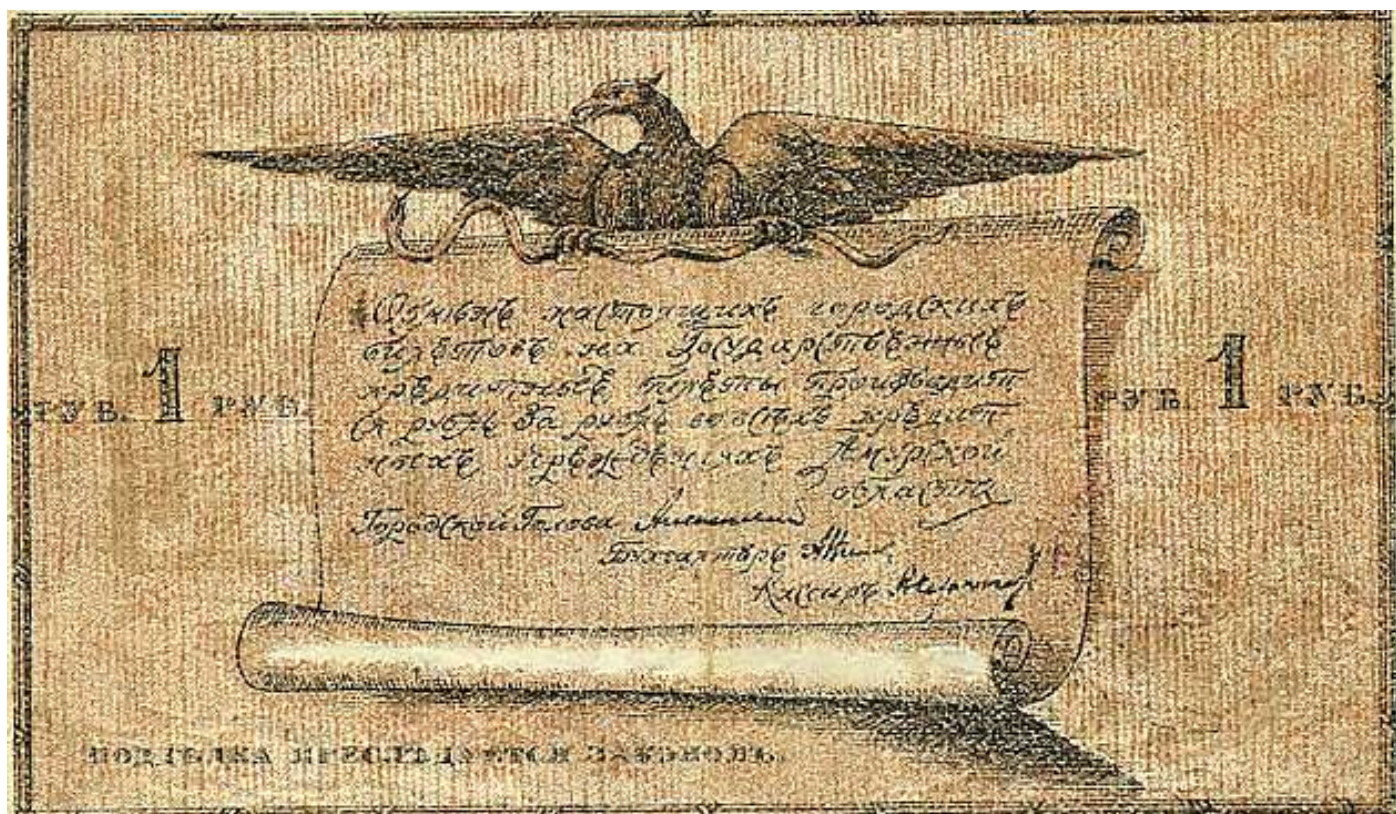 Обмѣнъ настоящихъ городскихъ
билетовъ на Государственные
кредитные билеты производит
ся рубль за рубль во всѣхъ кредит
ныхъ учрежденіяхъ Амурской
области
РУБ. 1 РУБ.
РУБ. 1 РУБ.
Городской Голова
Бухгалтеръ
Кассиръ
ПОДДѢЛКА ПРЕСЛѢДУЕТСЯ ЗАКОНОМЪ.